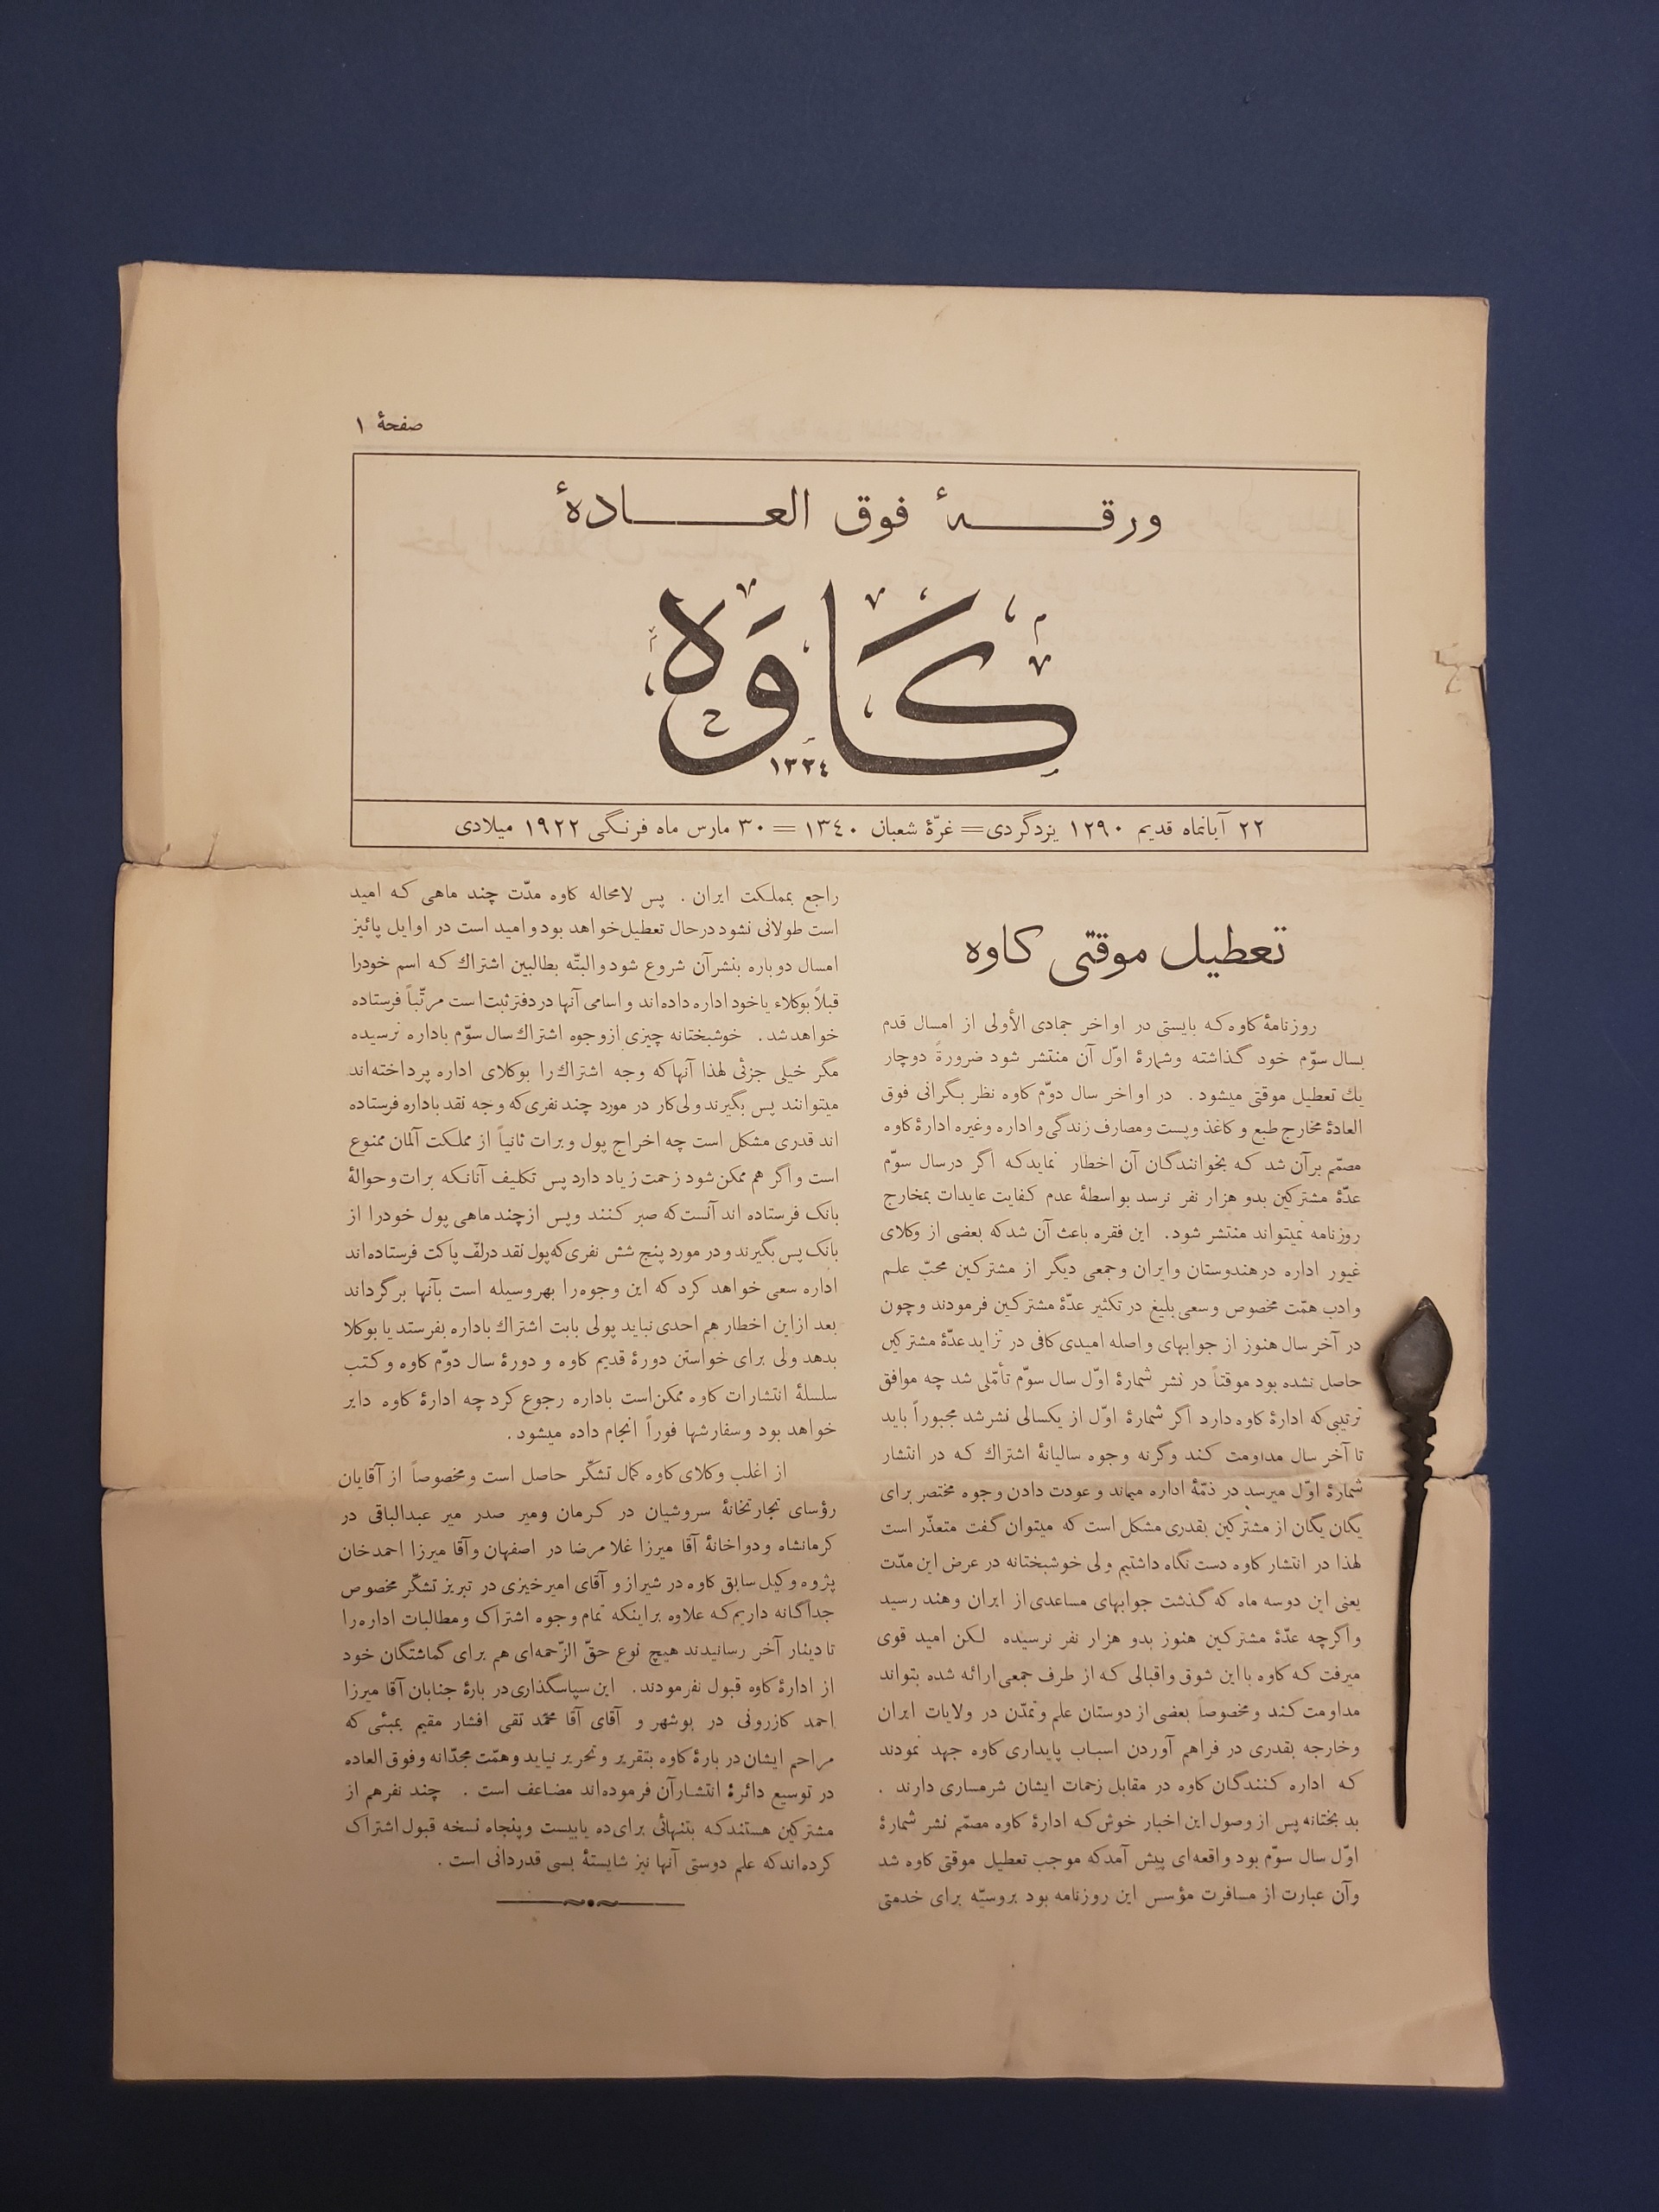 صفحهٔ ۱
ورقـــهٔ فوق العـــادهٔ
کاوه
١٣٣٤
٢٢ آبانماه قدیم ١٢٩٠ یزدگردی = غرّهٔ شعبان ١٣٤٠ = ٣٠ مارس ماه فرنگی ١٩٢٢ میلادی
تعطیل موقتی کاوه
روزنامهٔ کاوه که بایستی در اواخر جمادی الأولی از امسال قدم
بسال سوّم خود گذاشته وشمارهٔ اوّل آن منتشر شود ضرورةً دوچار
یك تعطیل موقتی میشود . در اواخر سال دوّم کاوه نظر بگرانی فوق
العادهٔ مخارج طبع و کاغذ وپست ومصارف زندگی واداره وغیره ادارهٔ کاوه
مصمّم برآن شد که بخوانندگان آن اخطار نماید که اگر در سال سوّم
عدّهٔ مشترکین بدو هزار نفر نرسد بواسطهٔ عدم کفایت عایدات بمخارج
روزنامه نمیتواند منتشر شود . این فقره باعث آن شد که بعضی از وکلای
غیور اداره در هندوستان وایران وجمعی دیگر از مشترکین محبّ علم
وادب همّت مخصوص وسعی بلیغ در تکثیر عدّهٔ مشترکین فرمودند وچون
در آخر سال هنوز از جوابهای واصله امیدی کافی در تزاید عدّهٔ مشترکین
حاصل نشده بود موقتاً در نشر شمارهٔ اوّل سال سوّم تأمّلی شد چه موافق
ترتیبی که ادارهٔ کاوه دارد اگر شمارهٔ اوّل از یکسالی نشر شد مجبوراً باید
تا آخر سال مداومت کند وگرنه وجوه سالیانهٔ اشتراك که در انتشار
شمارهٔ اوّل میرسد در ذمّهٔ اداره میماند وعودت دادن وجوه مختصر برای
یگان یگان از مشترکین بقدری مشکل است که میتوان گفت متعذّر است
لهذا در انتشار کاوه دست نگاه داشتیم ولی خوشبختانه در عرض این مدّت
یعنی این دوسه ماه که گذشت جوابهای مساعدی از ایران وهند رسید
واگرچه عدّهٔ مشترکین هنوز بدو هزار نفر نرسیده لکن امید قوی
میرفت که کاوه با این شوق واقبالی که از طرف جمعی ارائه شده بتواند
مداومت کند ومخصوصاً بعضی از دوستان علم وتمدّن در ولایات ایران
وخارجه بقدری در فراهم آوردن اسباب پایداری کاوه جهد نمودند
که اداره کنندگان کاوه در مقابل زحمات ایشان شرمساری دارند .
بدبختانه پس از وصول این اخبار خوش که ادارهٔ کاوه مصمّم نشر شمارهٔ
اوّل سال سوّم بود واقعه‌ای پیش آمد که موجب تعطیل موقتی کاوه شد
وآن عبارت از مسافرت مؤسس این روزنامه بود بروسیّه برای خدمتی
راجع بمملکت ایران . پس لامحاله کاوه مدّت چند ماهی که امید
است طولانی نشود در حال تعطیل خواهد بود وامید است در اوایل پائیز
امسال دوباره بنشر آن شروع شود والبتّه بطالبین اشتراك که اسم خود را
قبلاً بوکلاء یا خود اداره داده‌اند واسامی آنها در دفتر ثبت است مرتّباً فرستاده
خواهد شد . خوشبختانه چیزی از وجوه اشتراك سال سوّم باداره نرسیده
مگر خیلی جزئی لهذا آنها که وجه اشتراك را بوکلای اداره پرداخته‌اند
میتوانند پس بگیرند ولی کار در مورد چند نفری که وجه نقد باداره فرستاده
اند قدری مشکل است چه اخراج پول وبرات ثانیاً از مملکت آلمان ممنوع
است واگر هم ممکن شود زحمت زیاد دارد پس تکلیف آنانکه برات وحوالهٔ
بانك فرستاده اند آنست که صبر کنند وپس از چند ماهی پول خود را از
بانك پس بگیرند ودر مورد پنج شش نفری که پول نقد در لفّ پاکت فرستاده‌اند
اداره سعی خواهد کرد که این وجوه را بهر وسیله است بآنها برگرداند
بعد از این اخطار هم احدی نباید پولی بابت اشتراك باداره بفرستد یا بوکلا
بدهد ولی برای خواستن دورهٔ قدیم کاوه و دورهٔ سال دوّم کاوه وکتب
سلسلهٔ انتشارات کاوه ممکن است باداره رجوع کرد چه ادارهٔ کاوه دایر
خواهد بود وسفارشها فوراً انجام داده میشود .
از اغلب وکلای کاوه کمال تشکّر حاصل است ومخصوصاً از آقایان
رؤسای تجارتخانهٔ سروشیان در کرمان ومیر صدر میر عبدالباقی در
کرمانشاه ودواخانهٔ آقا میرزا غلامرضا در اصفهان وآقا میرزا احمدخان
پژوه وکیل سابق کاوه در شیراز وآقای امیرخیزی در تبریز تشکّر مخصوص
جداگانه داریم که علاوه بر اینکه تمام وجوه اشتراك ومطالبات اداره را
تا دینار آخر رسانیدند هیچ نوع حقّ الزّحمه‌ای هم برای گماشتگان خود
از ادارهٔ کاوه قبول نفرمودند . این سپاسگذاری در بارهٔ جنابان آقا میرزا
احمد کازرونی در بوشهر و آقای آقا محمّد تقی افشار مقیم بمبئی که
مراحم ایشان در بارهٔ کاوه بتقریر وتحریر نیاید وهمّت مجدّانه وفوق العاده
در توسیع دائرهٔ انتشار آن فرموده‌اند مضاعف است . چند نفر هم از
مشترکین هستند که بتنهائی برای ده یا بیست وپنجاه نسخه قبول اشتراك
کرده‌اند که علم دوستی آنها نیز شایستهٔ بسی قدردانی است .